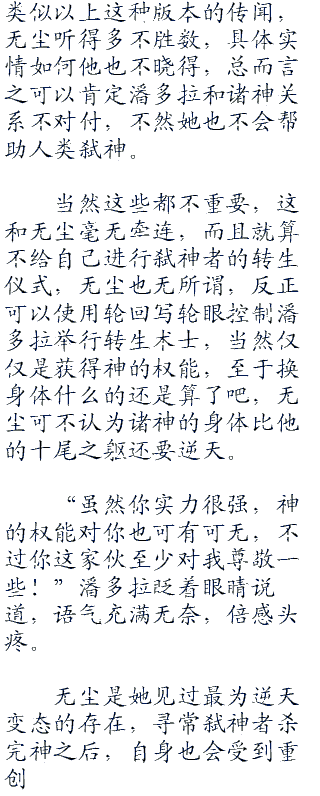 类似以上这种版本的传闻，
无尘听得多不胜数，具体实
情如何他也不晓得，总而言
之可以肯定潘多拉和诸神关
系不对付，不然她也不会帮
助人类弑神。
当然这些都不重要，这
和无尘毫无牵连，而且就算
不给自己进行弑神者的转生
仪式，无尘也无所谓，反正
可以使用轮回写轮眼控制潘
多拉举行转生术士，当然仅
仅是获得神的权能，至于换
身体什么的还是算了吧，无
尘可不认为诸神的身体比他
的十尾之躯还要逆天。
“虽然你实力很强，神
的权能对你也可有可无，不
过你这家伙至少对我尊敬一
些！”潘多拉眨着眼睛说
道，语气充满无奈，倍感头
疼。
无尘是她见过最为逆天
变态的存在，寻常弑神者杀
完神之后，自身也会受到重
创